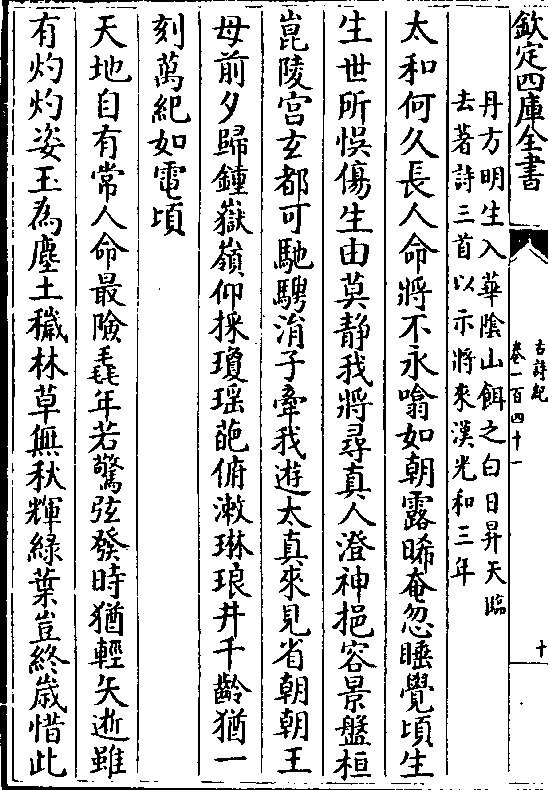 欽定四庫全書
古詩紀
卷一百四十一
十
丹方明生入華陰山餌之白日昇天臨
去著詩三首以示將來漢光和三年
太和何久長人命將不永噏如朝露晞奄忽睡覺頃生
生世所悮傷生由莫静我將尋真人澄神挹容景盤桓
崑陵宫玄都可馳騁涓子牽我遊太真來見省朝朝王
母前夕歸鍾嶽嶺仰採瓊瑶葩俯漱琳琅井千齡猶一
刻萬紀如電頃
天地自有常人命最險毳年若驚弦發時猶輕矢逝雖
有灼灼姿玉為塵土穢林草無秋輝緑葉豈終歳惜此